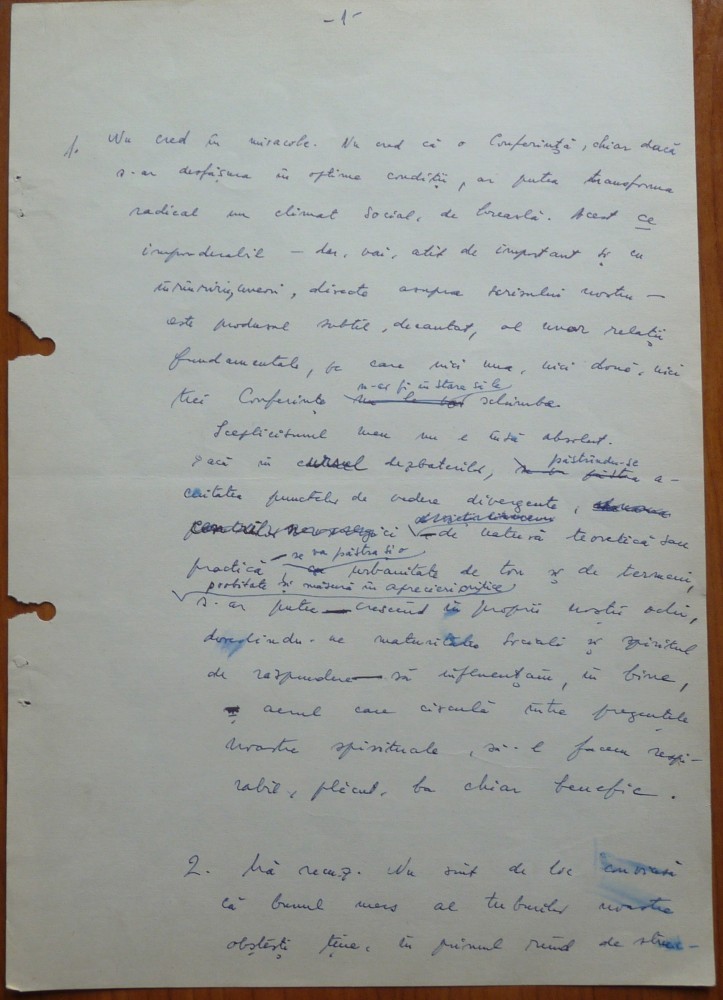 -1-
1. Nu cred în miracole. Nu cred că o Conferință, chiar dacă
s-ar desfășura în optime condiții, ar putea transforma
radical un climat social, de breaslă. Acest ce
imponderabil – dar, vai, atît de important și cu
înrîuriri, directe asupra scrisului nostru –
este produsul subtil, decantat, al unor relații
fundamentale, pe care nici una, nici două, nici
n-ar fi în stare să le
trei Conferințe schimba
Scepticismul meu nu e însă absolut.
păstrîndu-se
Dacă în cursul dezbaterilor, a-
cuitatea punctelor de vedere divergente,
de natură teoretică sau
se va păstra și o
practică – urbanitate de ton și de termeni,
probitate și măsură în aprecieri critice
s-ar putea – crescînd în proprii noștri ochi,
dovedindu-ne maturitatea socială și spiritul
de răspundere – să influențăm, în bine,
aerul care circulă între
noastre spirituale, să-l facem respi-
rabil, plăcut, ba chiar benefic.
2. Mă recuz. Nu sînt de loc convins
că bunul mers al treburilor noastre
obștești ține, în primul rînd de struc-